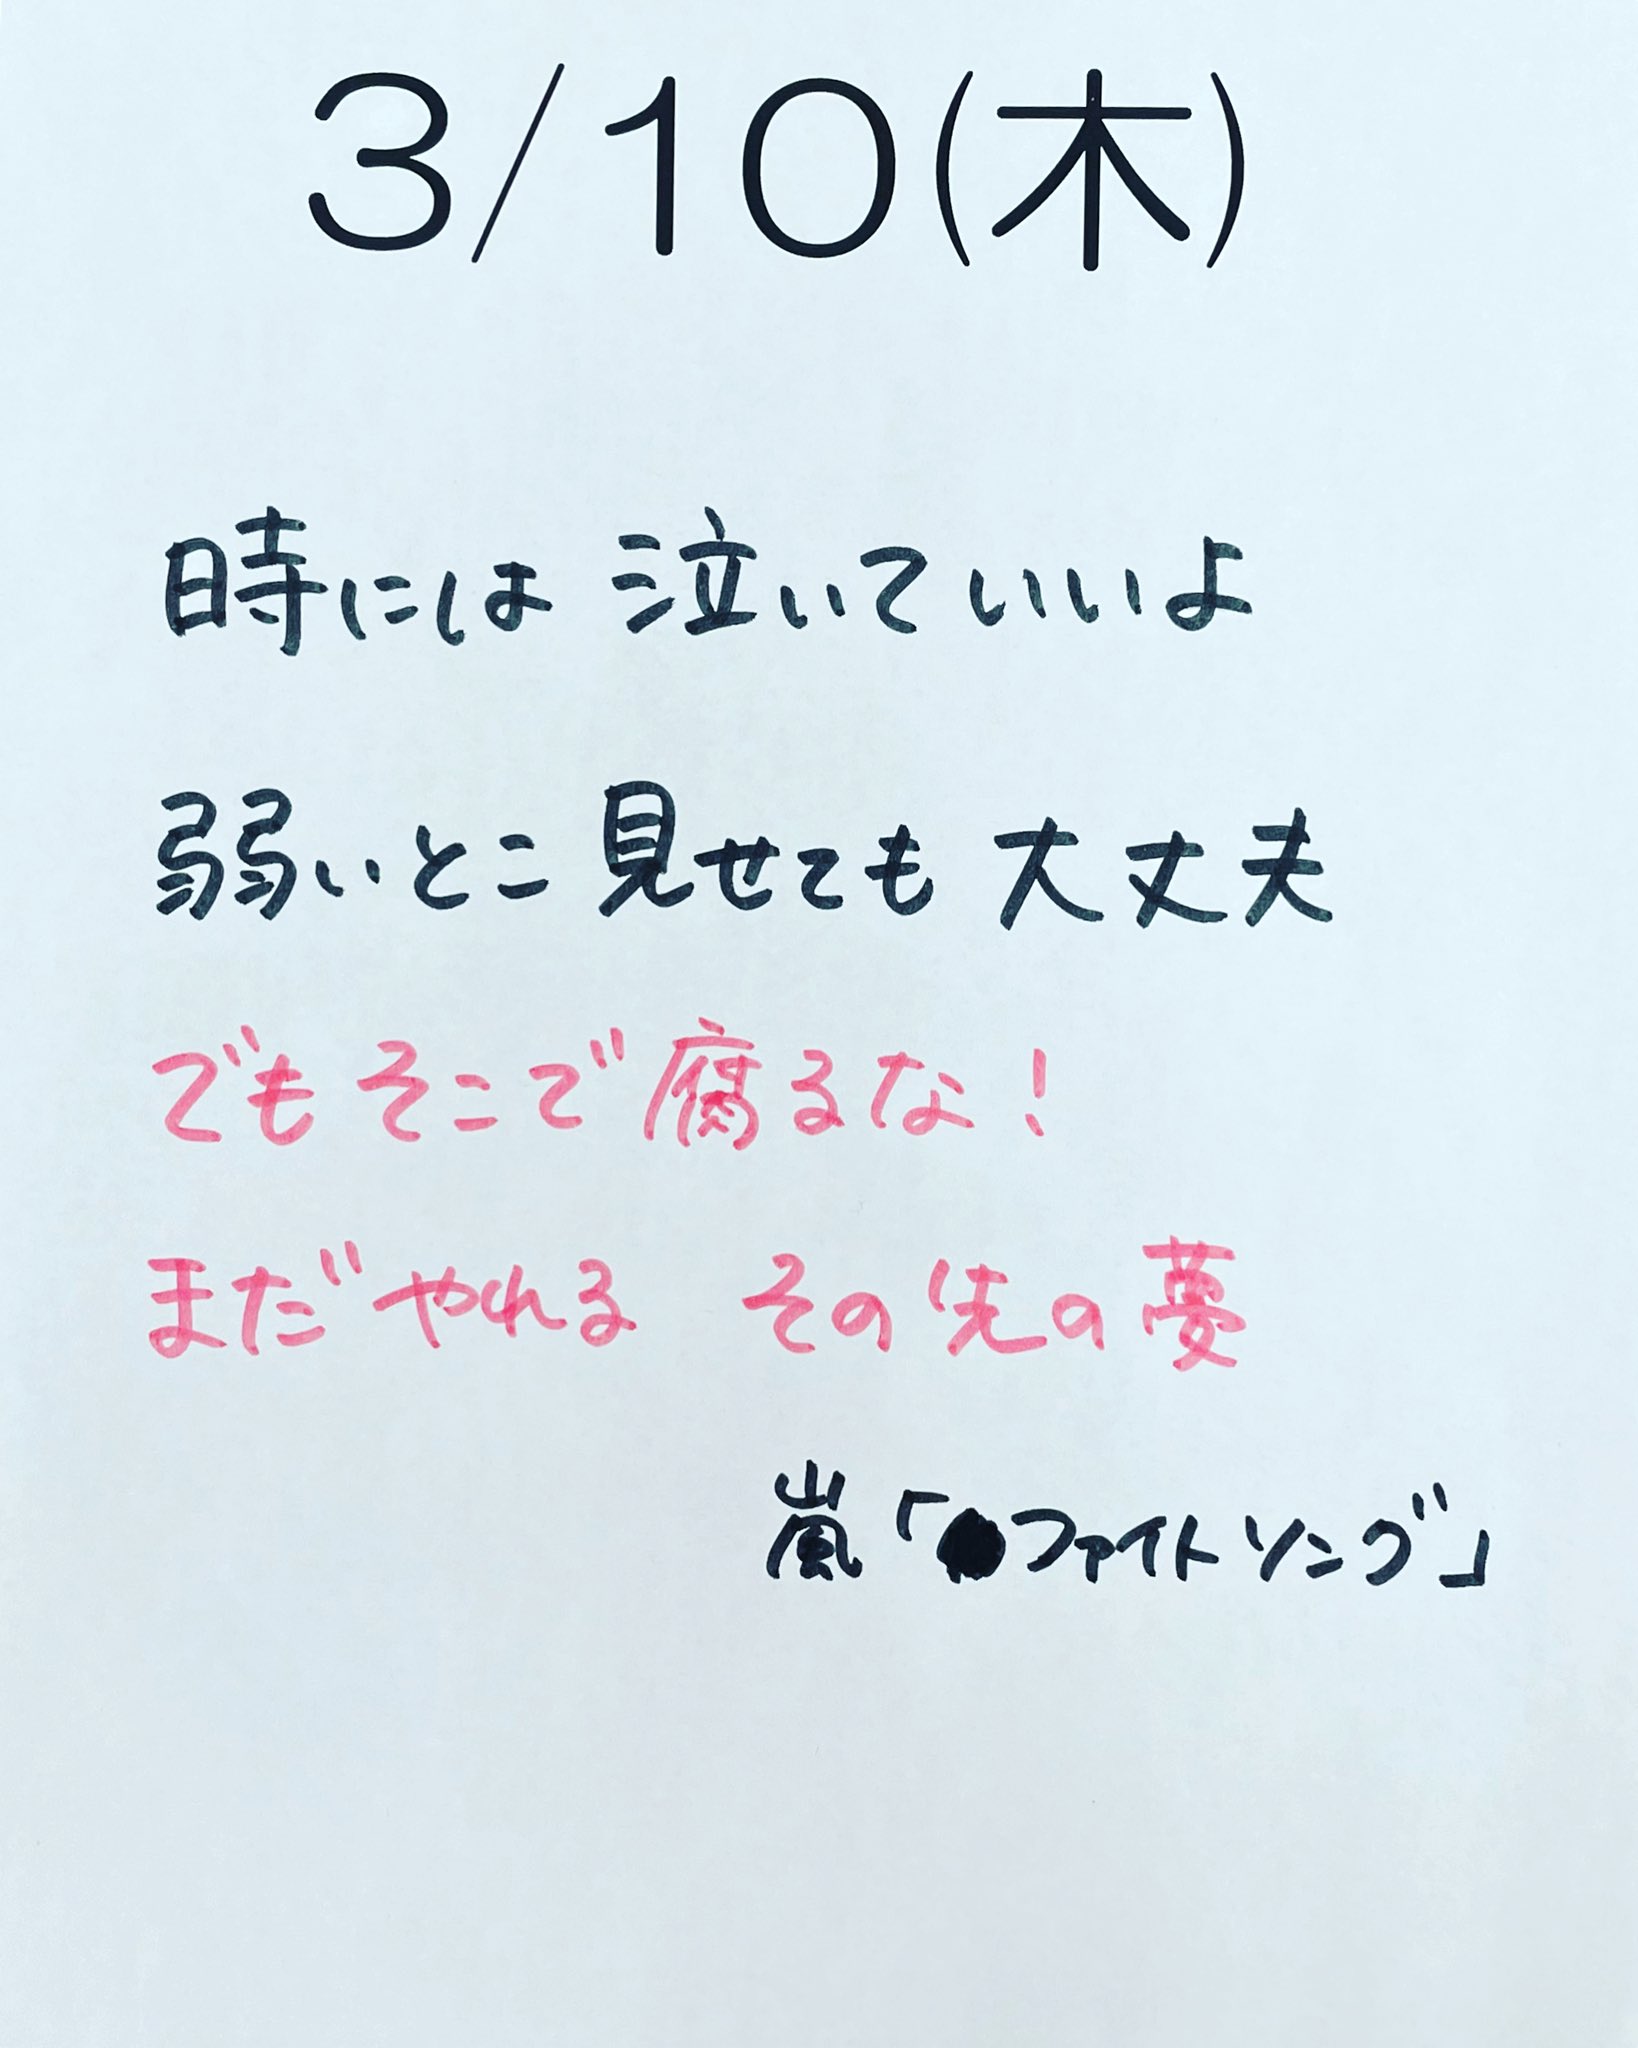 3/10(木)
時には 泣いていいよ
弱いとこ 見せても 大丈夫
でも そこで 腐るな!
まだ やれる その先の夢
嵐「ファイトソング」